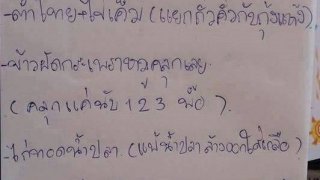 -ตำไทย-ไข่เค็ม (แยกถั่วคั่วกับกุ้งแห้ง)
-ข้าวผัดกะเพราหมูคลุกเลย
(คลุกแค่นับ 1 2 3 พอ).
-ไก่ทอดน้ำปลา (แพ้น้ำปลาล้างออกใส่เกลือ)